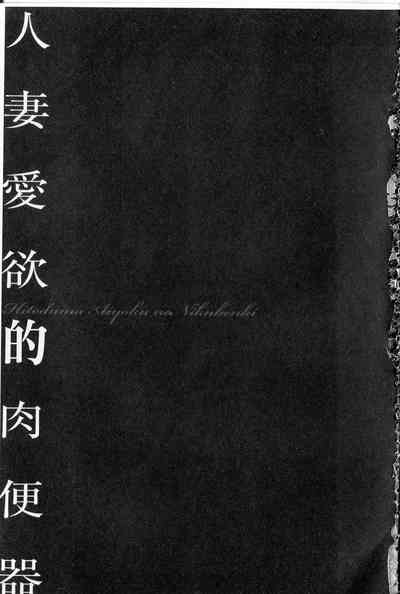 人妻愛欲的肉便器
Hitoduma Aiyoku no Nikubenki